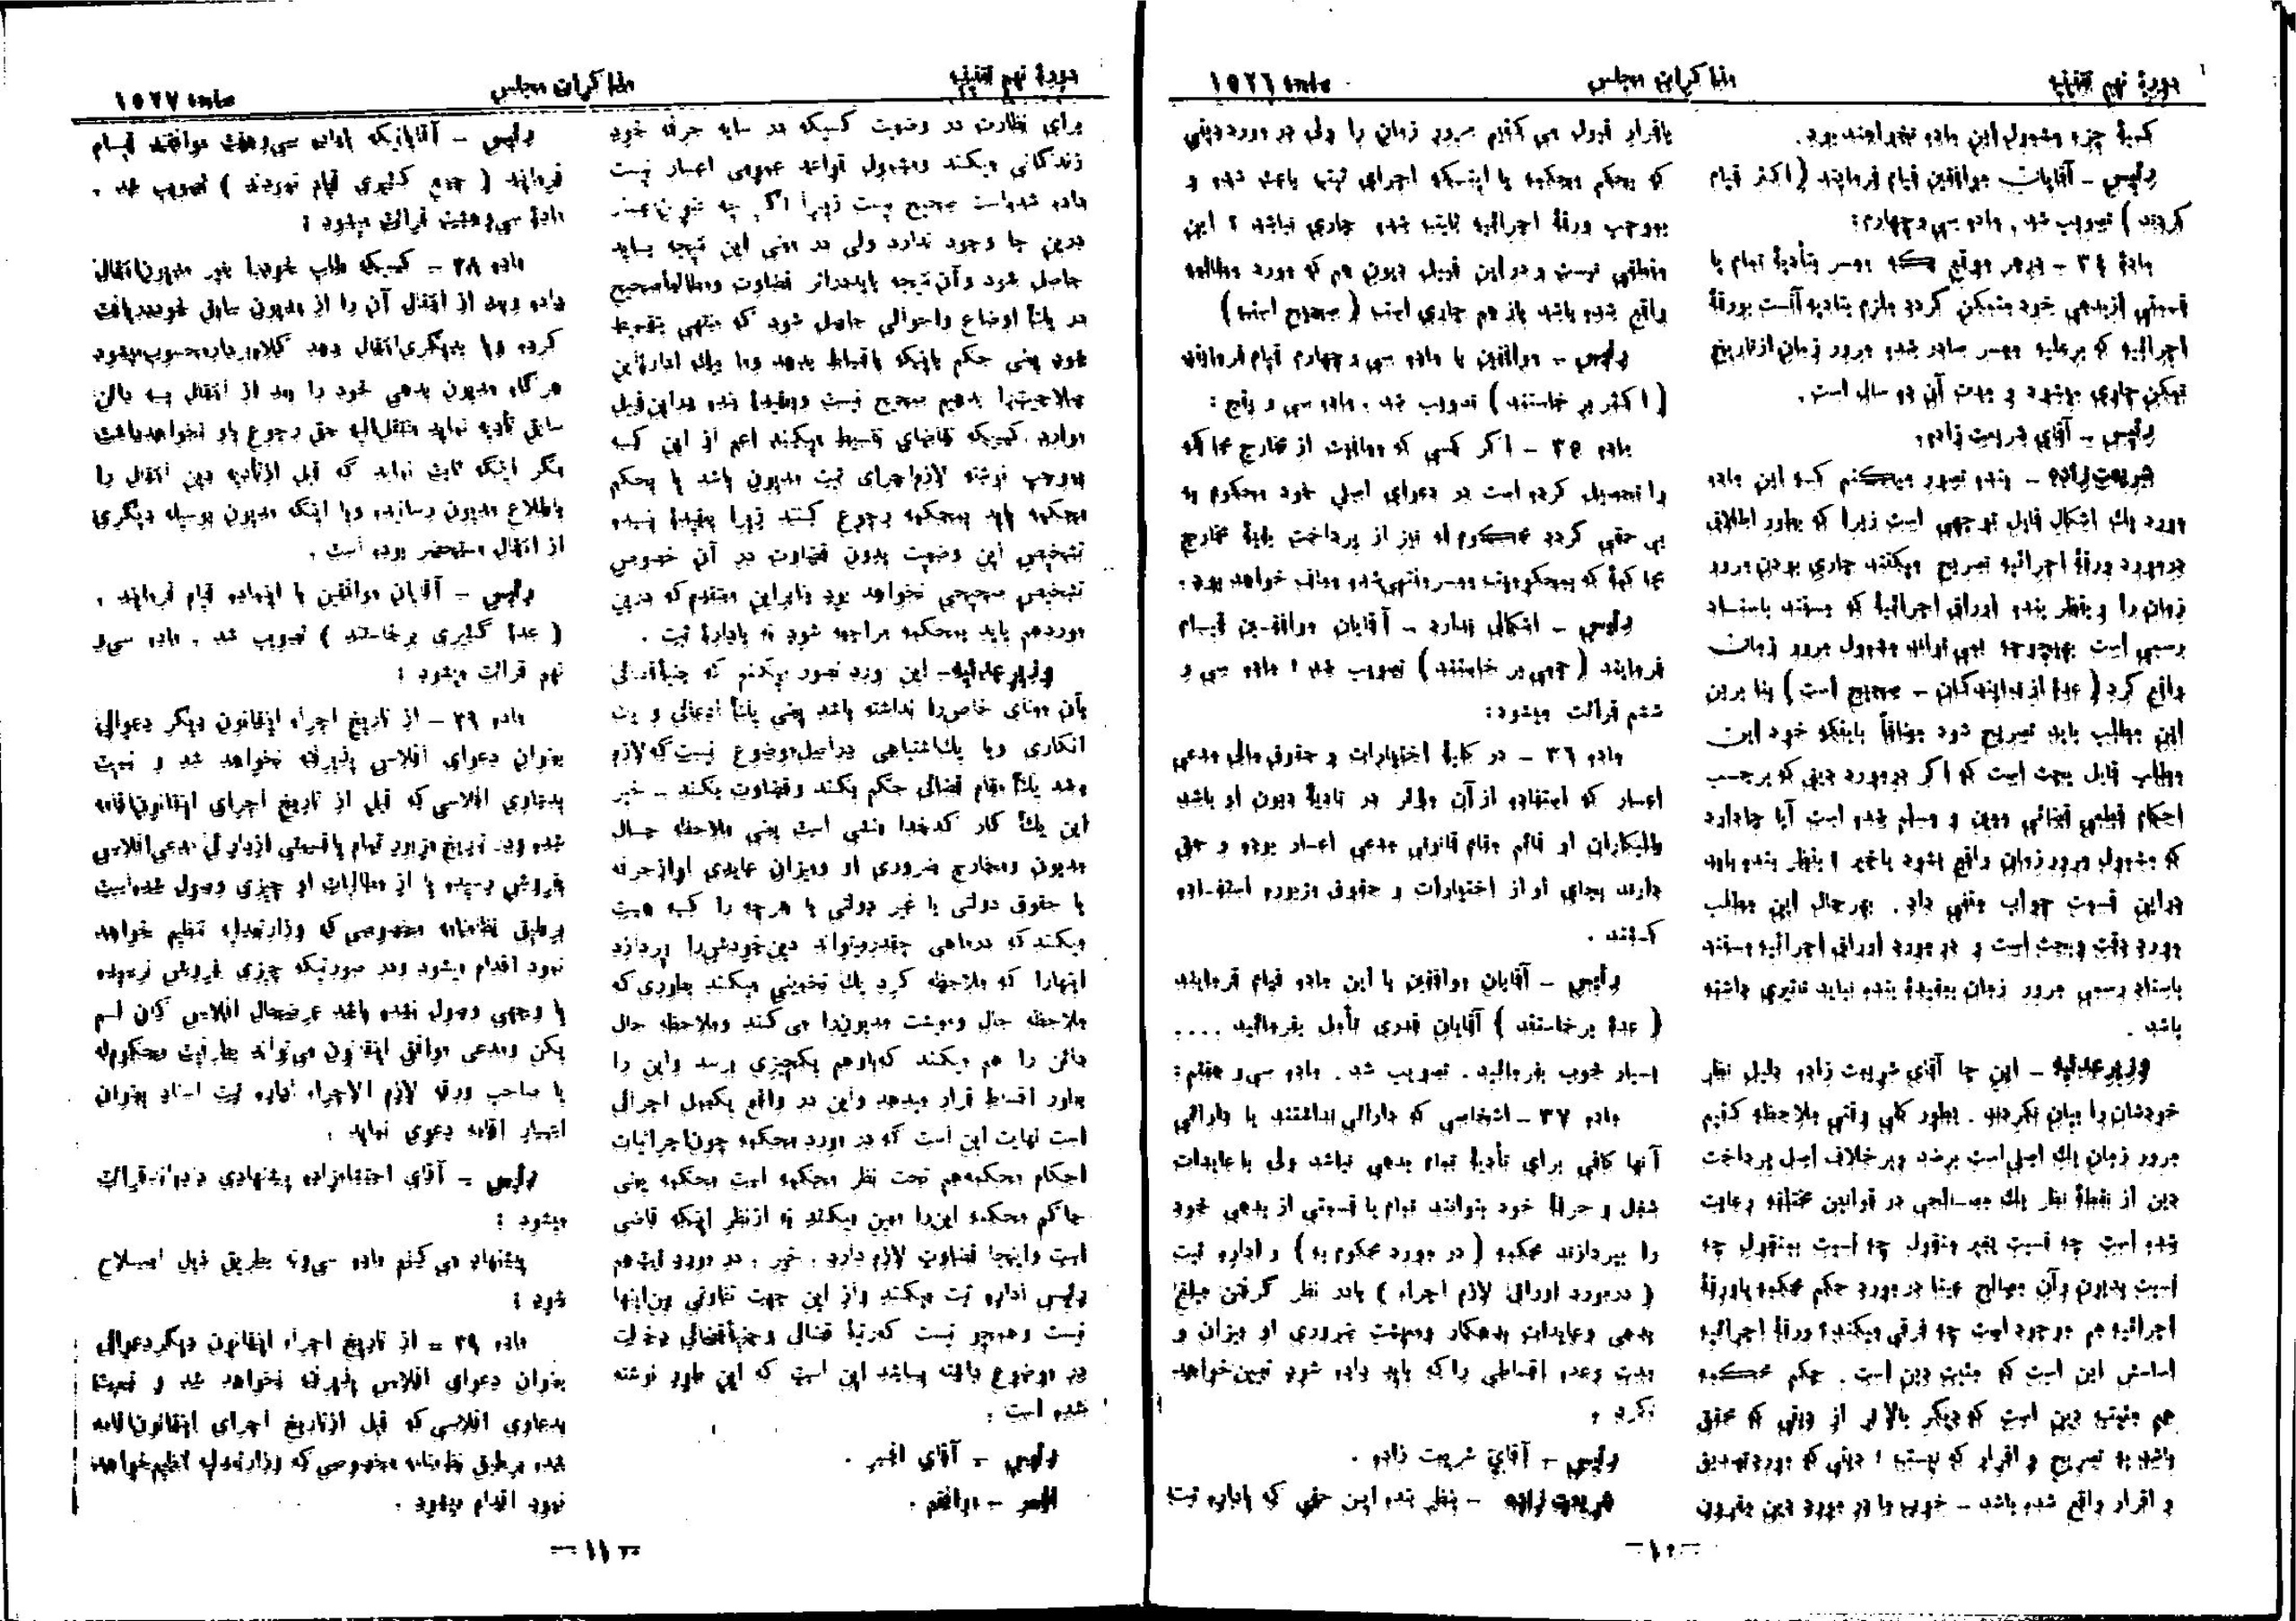 دورهٔ نهم تقنینیه
مذاکرات مجلس
صفحه ۱۵۲۶
کسبهٔ جزء مشمول این ماده نخواهند بود.
رئیس – آقایان موافقین قیام فرمایند (اکثر قیام
کردند) تصویب شد. ماده سی و چهارم:
مادهٔ ۳٤ – در هر موقع که معسر بتأدیهٔ تمام یا
قسمتی از بدهی خود متمکن گردد ملزم بتادیه آنست بورقهٔ
اجرائیه که بر علیه معسر صادر شده مرور زمان از تاریخ
تمکن جاری میشود و مدت آن ده سال است.
رئیس – آقای شریعت زاده.
شریعت زاده – بنده تصور میکنم که این ماده
مورد یك اشکال قابل توجهی است زیرا که بطور اطلاق
در مورد ورقهٔ اجرائیه تصریح میکند جاری بودن مرور
زمان را و بنظر بنده اوراق اجرائیهٔ که مستند باسناد
رسمی است بهیچوجه نمی تواند مشمول مرور زمان
واقع گردد (عدهٔ از نمایندگان – صحیح است) بنا برین
این مطلب باید تصریح شود مضافاً باینکه خود این
مطلب قابل بحث است که اگر در مورد دینی که برحسب
احکام قطعی قضائی معین و مسلم شده است آیا جا دارد
که مشمول مرور زمان واقع بشود یا خیر؟ بنظر بنده باید
در این قسمت جواب منفی داد. بهر حال این مطلب
مورد دقت و بحث است و در مورد اوراق اجرائیه مستند
باسناد رسمی مرور زمان بعقیدهٔ بنده نباید تاثیری داشته
باشد.
وزیر عدلیه – این جا آقای شریعت زاده دلیل نظر
خودشان را بیان نکردند. بطور کلی وقتی ملاحظه کنیم
مرور زمان یك اصلی است بر ضد و بر خلاف اصل پرداخت
دین از نقطهٔ نظر یك مصالحی در قوانین مختلفه رعایت
شده است چه نسبت بغیر منقول چه نسبت بمنقول چه
نسبت بدیون و آن مصالح عیناً در مورد حکم محکمه یا ورقهٔ
اجرائیه هم موجود است چه فرقی میکند؟ ورقهٔ اجرائیه
اساسش این است که مثبت دین است. حکم محکمه
هم مثبت دین است که دیگر بالاتر از دینی که محقق
باشد به تصریح و اقرار که نیست؟ دینی که مورد تصدیق
و اقرار واقع شده باشد – خوب ما در مورد دین مقرون
باقرار قبول می کنیم مرور زمان را ولی در مورد دینی
که بحکم محکمه یا اینکه اجرای ثبت باعث شده و
بموجب ورقهٔ اجرائیه ثابت شده جاری نباشد؟ این
منطقی نیست و در این قبیل دیون هم که مورد مطالبه
واقع شده باشد باز هم جاری است (صحیح است)
رئیس – موافقین با ماده سی و چهارم قیام فرمایند
(اکثر بر خاستند) تصویب شد. ماده سی و پنج:
ماده ۳۵ – اگر کسی که معافیت از مخارج محاکمه
را تحصیل کرده است در دعوای اصلی خود محکوم به
بی حقی گردد محکوم له نیز از پرداخت بقیهٔ مخارج
محاکمهٔ که بمحکومیت معسر منتهی شده معاف خواهد بود.
رئیس – اشکالی ندارد – آقایان موافقین قیام
فرمایند (جمعی بر خاستند) تصویب شد؛ ماده سی و
ششم قرائت میشود:
ماده ۳٦ – در کلیهٔ اختیارات و حقوق مالی مدعی
اعسار که استفاده از آن مؤثر در تادیهٔ دیون او باشد
طلبکاران او قائم مقام قانونی مدعی اعسار بوده و حق
دارند بجای او از اختیارات و حقوق مزبوره استفاده
کنند.
رئیس – آقایان موافقین با این ماده قیام فرمایند
(عدهٔ بر خاستند) آقایان قدری تأمل بفرمائید ....
بسیار خوب بفرمائید. تصویب شد. ماده سی و هفتم:
ماده ۳۷ – اشخاصی که دارائی نداشتند یا دارائی
آنها کافی برای تأدیهٔ تمام بدهی نباشد ولی با عایدات
شغل و حرفهٔ خود بتوانند تمام یا قسمتی از بدهی خود
را بپردازند محکمه (در مورد محکوم به) و اداره ثبت
(در مورد اوراق لازم اجراء) با در نظر گرفتن مبلغ
بدهی و عایدات بدهکار و معیشت ضروری او میزان و
مدت و عده اقساطی را که باید داده شود تعیین خواهد
کرد.
رئیس – آقای شریعت زاده.
شریعت زاده – بنظر بنده این حقی که باداره ثبت
–۱۰–
دورهٔ نهم تقنینیه
مذاکرات مجلس
صفحه ۱۵۲۷
برای نظارت در وضعیت کسیکه در سایه حرفه خود
زندگانی میکند و مشمول قواعد عمومی اعسار نیست
داده شده است صحیح نیست زیرا اگر چه عنوان اعسار
درین جا وجود ندارد ولی در معنی این نتیجه بباید
حاصل شود و آن نتیجه باید در اثر قضاوت و مطالعهٔ صحیح
در یك اوضاع و احوالی حاصل شود که منتهی بتقسیط
شود یعنی حکم باینکه باقساط بدهد و ما بیك اداره این
صلاحیت را بدهیم صحیح نیست و بعقیدهٔ بنده در این قبیل
موارد. کسیکه تقاضای تقسیط میکند اعم از این که
بموجب نوشته لازم اجرای ثبت مدیون باشد یا بحکم
محکمه باید بمحکمه رجوع کنند زیرا بعقیدهٔ بنده
تشخیص این وضعیت بدون قضاوت در آن خصوص
تشخیص صحیحی نخواهد بود بنابراین معتقدم که در این
مورد هم باید بمحکمه مراجعه شود نه بادارهٔ ثبت.
وزیر عدلیه – این مورد تصور میکنم که جنبهٔ قضائی
بآن معنای خاص را نداشته باشد یعنی یك ادعائی و یك
انکاری و یا یك اشتباهی در اصل موضوع نیست که لازم
باشد یك مقام قضائی حکم بکند و قضاوت بکند – خیر
این یك کار کدخدا منشی است یعنی ملاحظه حال
مدیون و مخارج ضروری او و میزان عایدی او از حرفه
یا حقوق دولتی یا غیر دولتی یا هرچه را که هست
میکند که در ماهی چقدر میتواند دین خودش را بپردازد
اینها را که ملاحظه کرد یك تخمینی میکند بطوری که
ملاحظه حال و معیشت مدیون را می کند و ملاحظه حال
دائن را هم میکند که باو هم یکچیزی برسد و این را
بطور اقساط قرار میدهد و این در واقع یك عمل اجرائی
است نهایت این است که در مورد محکمه چون اجرائیات
احکام محکمه هم تحت نظر محکمه است محکمه یعنی
حاکم محکمه این را معین میکند نه از نظر اینکه قاضی
است و اینجا قضاوت لازم دارد. خیر. در مورد ثبت هم
رئیس اداره ثبت میکند و از این جهت تفاوتی بین اینها
نیست و همچو نیست که رتبهٔ قضائی و جنبهٔ قضائی دخالت
در موضوع داشته باشد این است که این طور نوشته
شده است.
رئیس – آقای افسر.
افسر – موافقم.
رئیس – آقایانیکه باماده سی و هفت موافقند قیام
فرمایند (جمع کثیری قیام نمودند) تصویب شد.
مادهٔ سی و هشت قرائت میشود:
ماده ۳۸ – کسیکه طلب خود را بغیر مدیون انتقال
داده و بعد از انتقال آن را از مدیون سابق خود دریافت
کرده و یا بدیگری انتقال دهد کلاه بردار محسوب میشود
هر گاه مدیون بدهی خود را بعد از انتقال به دائن
سابق تأدیه نماید منتقل الیه حق رجوع باو نخواهد داشت
مگر اینکه ثابت نماید که قبل از تأدیه دین انتقال را
باطلاع مدیون رسانیده و یا اینکه مدیون بوسیله دیگری
از انتقال مستحضر بوده است.
رئیس – آقایان موافقین با اینماده قیام فرمایند.
(عدهٔ کثیری بر خاستند) تصویب شد. ماده سی و
نهم قرائت میشود:
ماده ۳۹ – از تاریخ اجراء اینقانون دیگر دعوائی
بعنوان دعوای افلاس پذیرفته نخواهد شد و نسبت
بدعاوی افلاسی که قبل از تاریخ اجرای اینقانون اقامه
شده و در تاریخ مزبور تمام یا قسمتی از دارائی مدعی افلاس
بفروش رسیده یا از مطالبات او چیزی وصول شده است
بر طبق نظامنامه مخصوصی که وزارت عدلیه تنظیم خواهد
نمود اقدام میشود و در صورتیکه چیزی بفروش نرسیده
یا وجهی وصول نشده باشد عرضحال افلاس کان لم
یکن و مدعی موافق اینقانون می‌تواند بطرفیت محکوم‌له
یا صاحب ورقه لازم الاجراء اداره ثبت اسناد بعنوان
اعسار اقامه دعوی نماید.
رئیس – آقای احتشام زاده پیشنهادی دارند قرائت
میشود:
پیشنهاد می کنم ماده سی و نه بطریق ذیل اصلاح
شود:
ماده ۳۹ – از تاریخ اجراء اینقانون دیگر دعوائی
بعنوان دعوای افلاس پذیرفته نخواهد شد و نسبت
بدعاوی افلاسی که قبل از تاریخ اجرای اینقانون اقامه
شده بر طبق نظامنامه مخصوصی که وزارت عدلیه تنظیم خواهد
نمود اقدام میشود.
–۱۱–